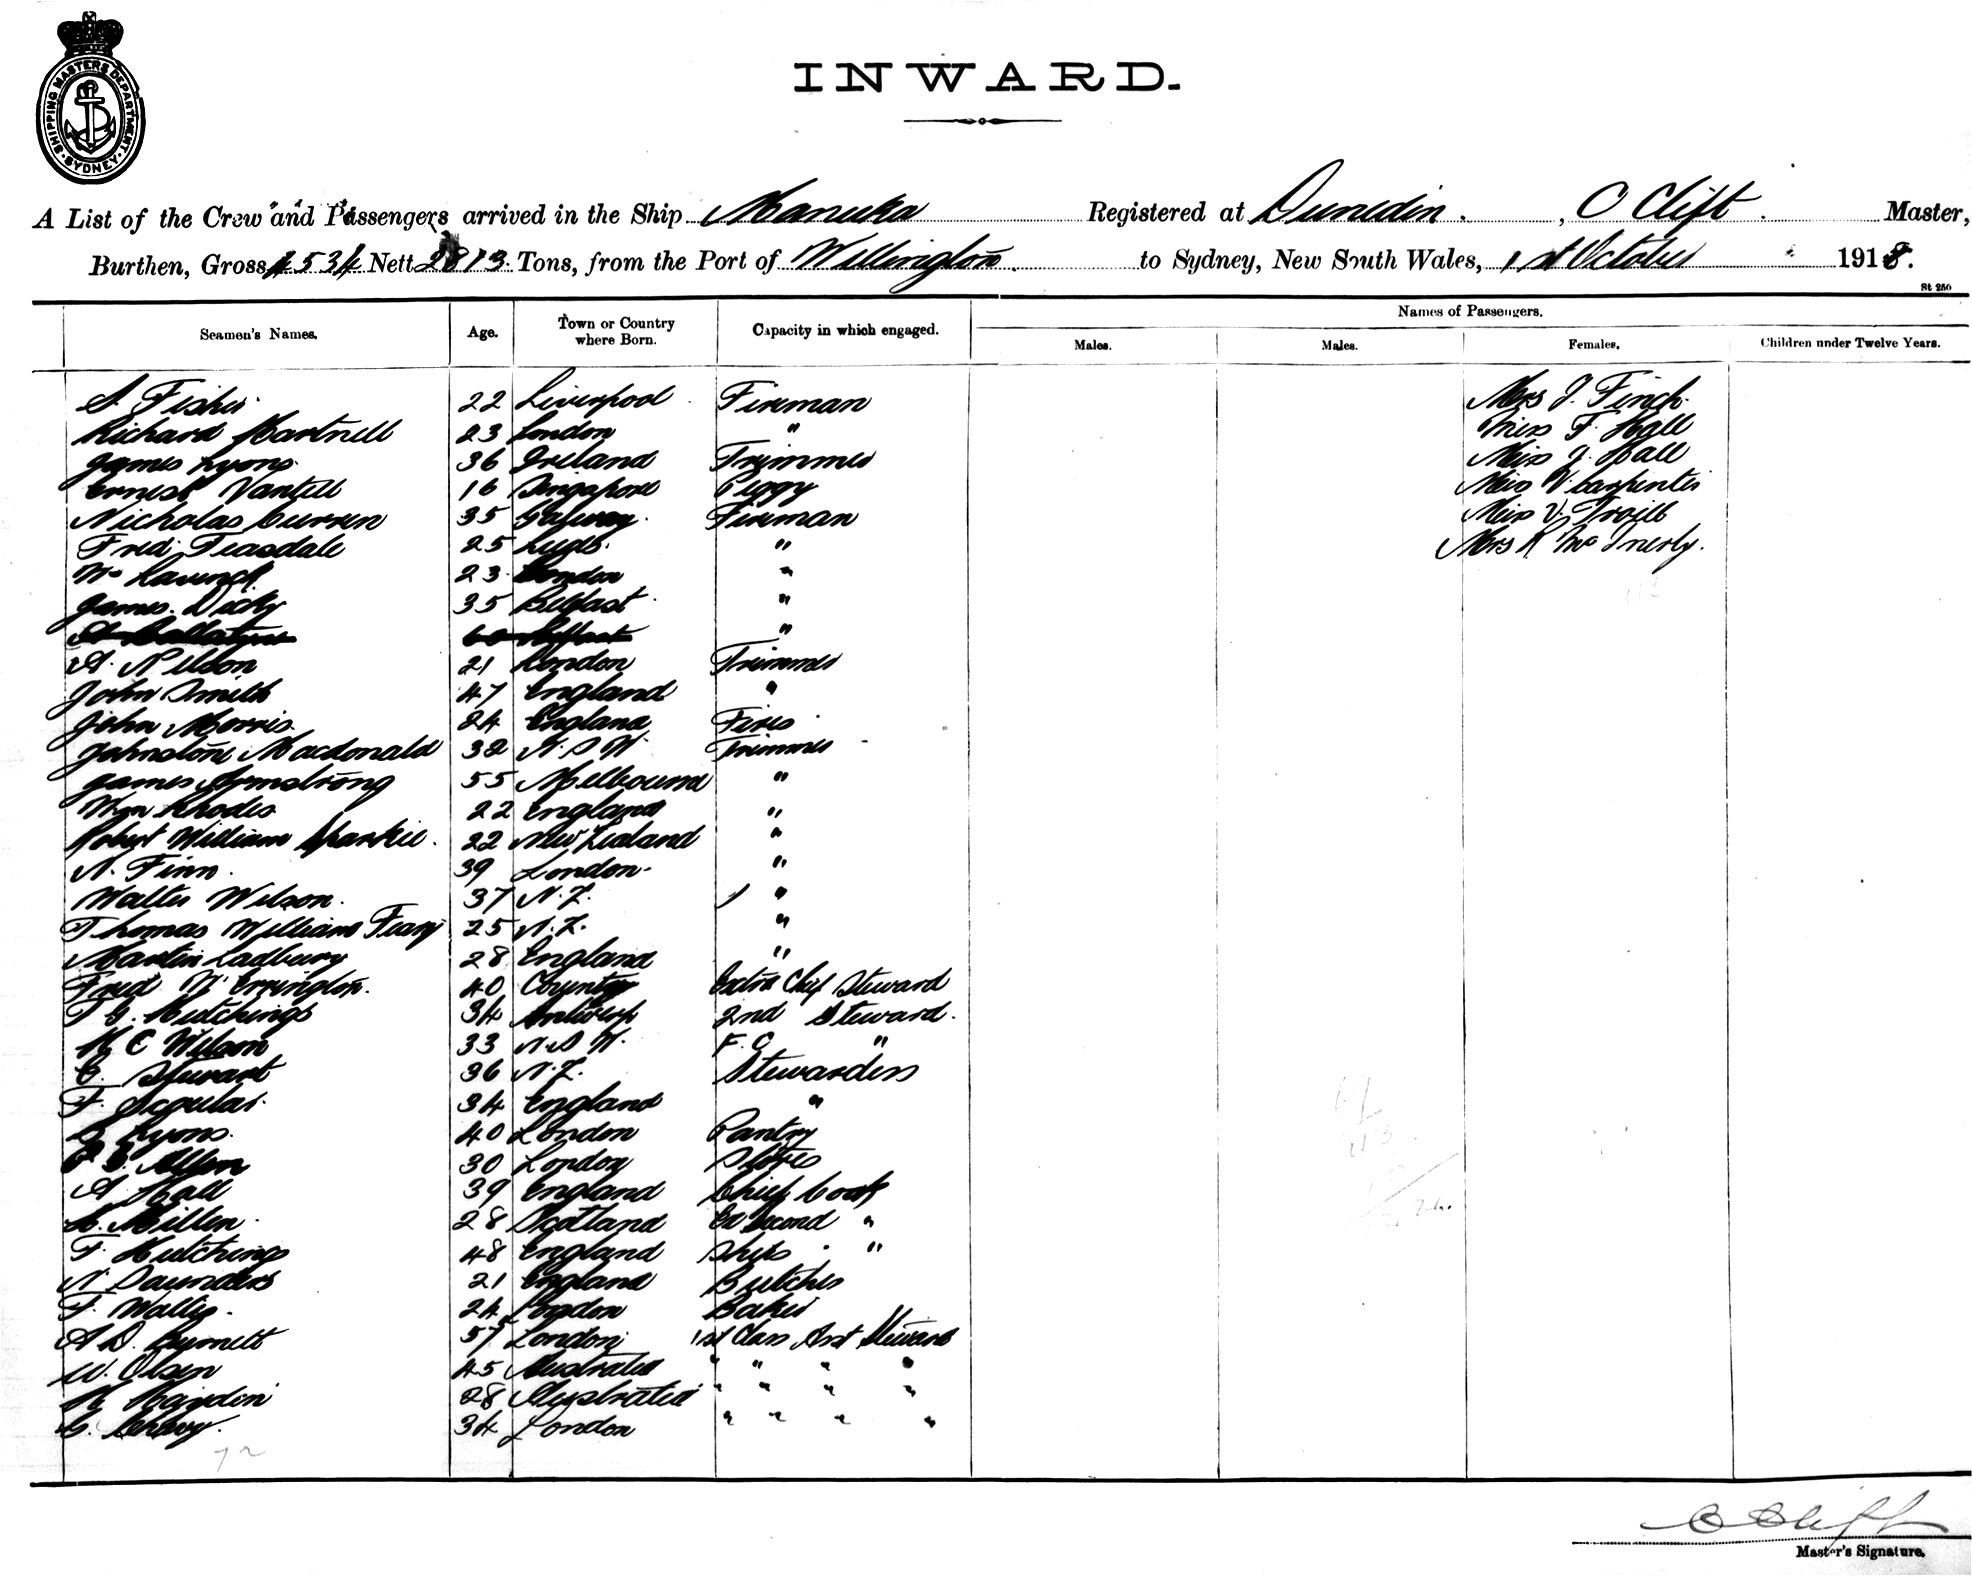 SHIPPING MASTERS DEPARTMENT
SYDNEY
INWARD.
A List of the Crew and Passengers arrived in the Ship Manuka Registered at Dunedin, C Clift Master,
Burthen, Gross 4534 Nett 2813 Tons, from the Port of Wellington to Sydney, New South Wales, 1st October 1918.
St 250
Seamen's Names. Age. Town or Country where Born. Capacity in which engaged. Names of Passengers.
Males. Males. Females. Children under Twelve Years.
S. Fisher 22 Liverpool Fireman Mrs J. Finch
Richard Martnell 23 London " Miss F. Hall
James Lyons 36 Ireland Trimmer Miss J. Hall
Ernest Vantell 16 Singapore Peggy Miss V. Carpenter
Nicholas Curren 35 Galway Fireman Miss V. Troill
Fred Teasdale 25 Leeds " Mrs R McInerly.
Wm 23 London "
James Dicky 35 Belfast "
"
A. Nilson 21 London Trimmer
John Smith 47 England "
John Morris 24 England Fires
Johnstone Macdonald 32 N.S.W. Trimmer
James Armstrong 55 Melbourne "
Wm Rhodes 22 England "
Robert William Sharkie 22 New Zealand "
N. Finn 39 London "
Walter Wilson 37 N.Z. "
Thomas William Feary 25 N.Z. "
Martin Ladbury 28 England "
Fred W Errington 40 Extra Chief Steward
T G. Hutchings 34 Antwerp 2nd Steward
H C Wilson 33 N.S.W. F.C "
C. Stewart 36 N.Z. Stewardess
F. 34 England "
Lyons 40 London Pantry
Allen 30 London Stores
A. Hall 39 England Chief Cook
Millen 28 Scotland Ex Second "
F. Hutchings 48 England Ships "
N. Saunders 21 England Butcher
F. 24 London Baker
A D. Burnett 57 London 1st Class Asst Steward
W. Olsen 45 Australia " " " "
H Haydin 28 Australia " " " "
C. 34 London " " " "
72
C Clift
Master's Signature.